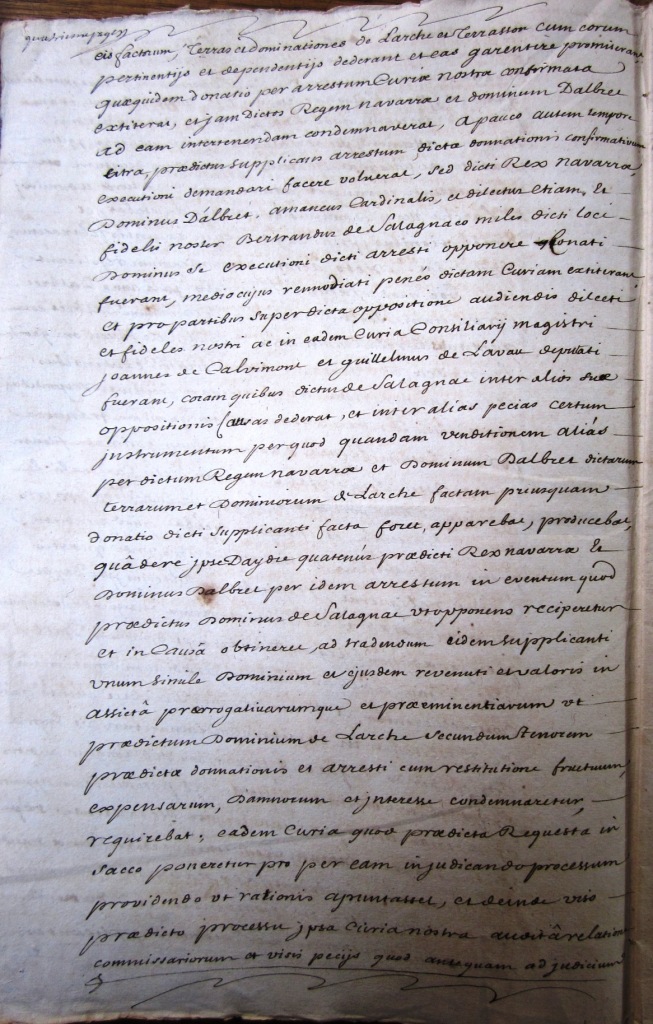 eis factum, Terras et dominationes de Larche et Terrasson cum eorum
pertinentijs et dependentijs dederant et eas garentire promiserant
quæquidem donatio per arrestum Curiæ nostræ confirmata
extiterat, et jam dictos Regem navarræ et dominum Dalbret
ad eam intertenendam condemnaverat, a pauco autem tempore
citra, prædictus supplicans arrestum dictæ donnationis confirmativum
executioni demandari facere voluerat, sed dicti Rex navarræ
Dominus Dalbret, amaneus Cardinalis, et dilectus etiam, Et
fidelis noster Bertrandus de Salagnaco miles dicti loci
Dominus se executioni dicti arresti opponere conati
fuerant, mediocujus remediati penes dictam Curiam extiterant
et pro partibus super dicta oppositione audiendis dilecti
et fideles nostri ac in eadem Curia Consiliarij magistri
joannes de Calvimont et guillelmus de Lavau deputati
fuerant, coram quibus dictus de Salagnac inter alios suæ
oppositionis Causas dederat, et inter alias pecias certum
justrumentum per quod quandam venditionem aliás
per dictum Regem navarræ et Dominum Dalbret dictarum
terrarum et Dominiorum de Larche factam priusquam
donatio dicti supplicanti facta foret, apparebat, producebat,
quâ de re jpse Daydie quatenus prædicti Rex navarræ Et
Dominus Dalbret per idem arrestum in eventum quod
prædictus Dominus de Salagnac ut opponens reciperetur
et in Causâ obtineret, ad tradendum eidem supplicanti
unum simile Dominium et ejusdem revenuti et valoris in
assietâ prærrogativarumque et præeminentiarum ut
prædictum Dominium de Larche secundum tenorem
prædictæ donnationis et arresti cum restitutione fructuum,
expensarum, Damnorum et jnteresse condemnaretur,
requirebat; eadem Curia quod prædicta Requesta in
sacco poneretur pro per eam in judicando processum
providendo ut rationis apuntasset, et deinde viso
prædicto processu jpsa Curia nostra auditâ relatione
commissariorum et visis pecijs quod antequam ad judicium